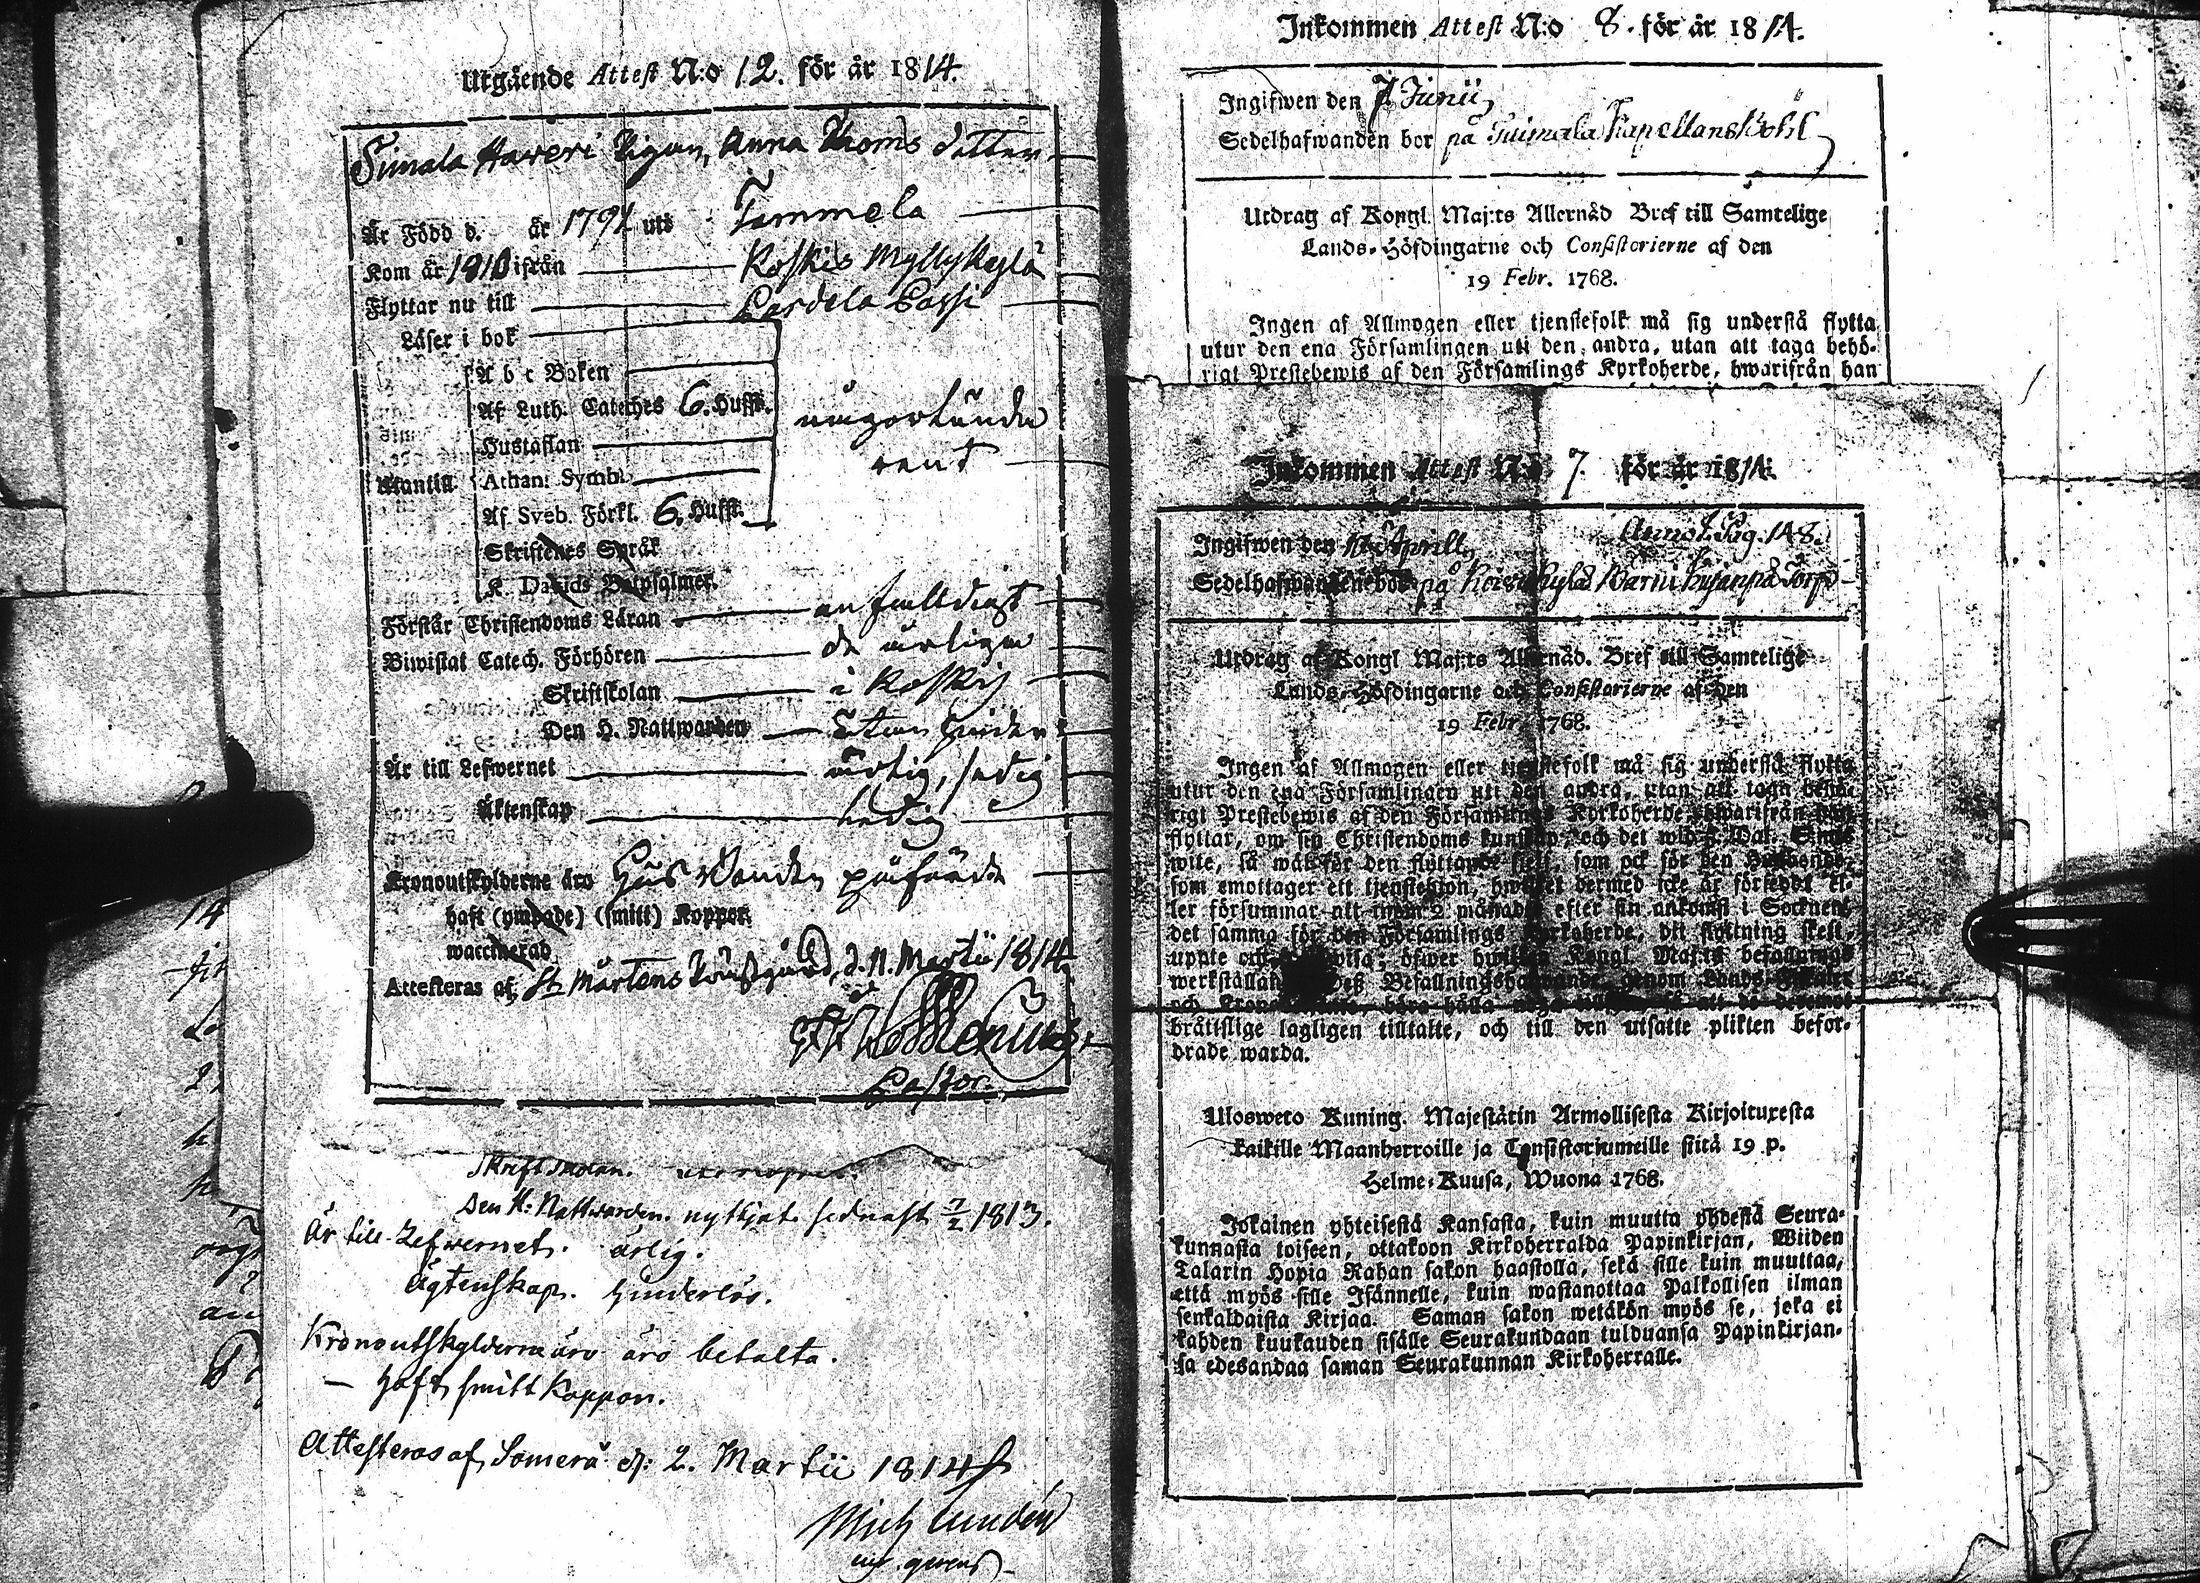 Utgående Attest N:o 12. för år 1814.
Simala Haveri Pigan, Anna Thoms dotter
Är Född d. år 1791 uti Tammela
Kom år 1810 ifrån Koskis Myllykylä
Flyttar nu till Pardela Passi
Läser i bok
A b c Boken
Af Luth. Cateches 6. Hufft. någorlunda
Hustaflan rent
Utantill Athan: Symb:
Af Sveb. Förkl. 6. Hufft.
Skriftenes Språk
K. Davids Botpsalmer.
Förstår Christendoms Läran enfaldigt
Biwistat Catech. Förhören de årliga
Skriftskolan i Koskis
Den H. Nattwarden
Är till Lefwernet ärlig, sedig
Äktenskap ledig
Kronoutskylderne äro Husbonden påförde
haft (ympade) (smitt) Koppor.
waccinerad
Attesteras af St Mårtens Prästgård, d. 11. Martii 1814
Pastor.
Skriftskolan.
Den H: Nattwarden. nyttjat sednast 7/2 1813.
Är till Lefwernet. ärlig.
Ägtenskap. hinderlös.
Kronoutskylderna äro äro betalta.
— haft smitt Koppor.
Attesteras af Somero d: 2. Martii 1814
Mich Lundén
Inkommen Attest N:o 8. för år 1814.
Ingifwen den 7 Junii,
Sedelhafwanden bor på Tuimala Kapellansbohl
Utdrag af Kongl. Maj:ts Allernåd Bref till Samtelige
Lands-Höfdingarne och Consistorierne af den
19 Febr. 1768.
Ingen af Allmogen eller tjenstefolk må sig understå flytta
utur den ena Församlingen uti den andra, utan att taga behö-
rigt Prestebewis af den Församlings Kyrkoherde, hwarifrån han
Inkommen Attest N:o 7. för år 1814.
Ingifwen den Aprill, Annot. Pag. 148.
Sedelhafwanden bor på Torp
Utdrag af Kongl Maj:ts Allernåd. Bref till Samtelige
Lands-Höfdingarne och Consistorierne af den
19 Febr. 1768.
Ingen af Allmogen eller tjenstefolk må sig understå flytta
utur den ena Församlingen uti den andra, utan att taga behö-
rigt Prestebewis af den Församlings Kyrkoherde, hwarifrån han
flyttar, om sin Christendoms kunskap, och det wid 5. Dal. S:mts
wite, så wäl för den flyttande sjelf, som ock för den Husbonde,
som emottager ett tjenstehjon, hwilket dermed icke är försedt el-
ler försummar att inom 2 månader efter sin ankomst i Socknen
det samma för den Församlings Kyrkoherde, dit flyttning skett,
uppte och wisa; öfwer hwilken Kongl. Maj:ts befallnings
werkställan Deß Befallningshafwande, genom Lands-Fiskaler
och Krono hålla
bråttslige lagligen tilltalte, och till den utsatte plikten befor-
drade warda.
Ulosweto Kuning. Majestätin Armollisesta Kirjoituxesta
kaikille Maanherroille ja Consistoriumeille siitä 19 p.
Helme-Kuusa, Wuona 1768.
Jokainen yhteisestä Kansasta, kuin muutta yhdestä Seura-
kunnasta toiseen, ottakoon Kirkoherralda Papinkirjan, Wiiden
Talarin Hopia Rahan sakon haastolla, sekä sille kuin muuttaa,
että myös sille Isännelle, kuin wastanottaa Palkollisen ilman
senkaldaista Kirjaa. Saman sakon wetäkön myös se, joka ei
kahden kuukauden sisälle Seurakundaan tulduansa Papinkirjan-
sa edesandaa saman Seurakunnan Kirkoherralle.